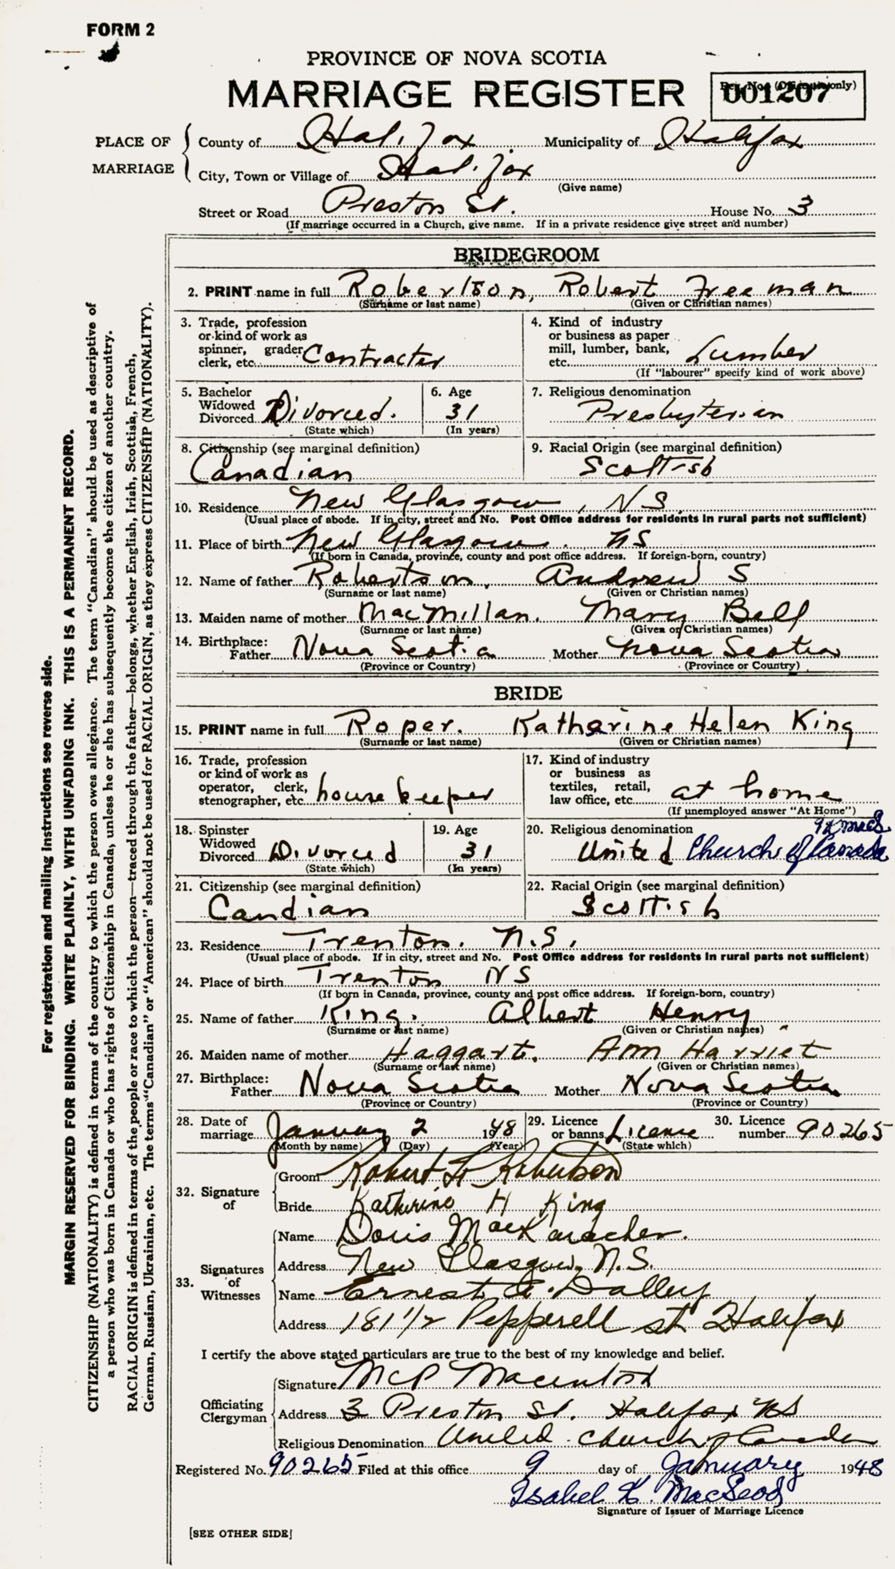 FORM 2
PROVINCE OF NOVA SCOTIA
MARRIAGE REGISTER
001207
PLACE OF MARRIAGE
County of Halifax Municipality of Halifax
City, Town or Village of Halifax
(Give name)
Street or Road Preston St. House No. 3
(If marriage occurred in a Church, give name. If in a private residence give street and number)
BRIDEGROOM
2. PRINT name in full Robertson, Robert Freeman
(Surname or last name) (Given or Christian names)
3. Trade, profession or kind of work as spinner, grader, clerk, etc. Contractor
4. Kind of industry or business as paper mill, lumber, bank, etc. Lumber
(If "labourer" specify kind of work above)
5. Bachelor Widowed Divorced Divorced.
(State which)
6. Age 31
(In years)
7. Religious denomination
Presbyterian
8. Citizenship (see marginal definition)
Canadian
9. Racial Origin (see marginal definition)
Scottish
10. Residence New Glasgow, NS
(Usual place of abode. If in city, street and No. Post Office address for residents in rural parts not sufficient)
11. Place of birth New Glasgow. NS
(If born in Canada, province, county and post office address. If foreign-born, country)
12. Name of father Robertson, Andrew S
(Surname or last name) (Given or Christian names)
13. Maiden name of mother MacMillan. Mary Bell
(Surname or last name) (Given or Christian names)
14. Birthplace:
Father Nova Scotia Mother Nova Scotia
(Province or Country) (Province or Country)
BRIDE
15. PRINT name in full Roper. Katharine Helen King
(Surname or last name) (Given or Christian names)
16. Trade, profession or kind of work as operator, clerk, stenographer, etc. housekeeper
17. Kind of industry or business as textiles, retail, law office, etc. at home
(If unemployed answer "At Home")
18. Spinster Widowed Divorced Divorced
(State which)
19. Age 31
(In years)
20. Religious denomination
United Church of Canada
21. Citizenship (see marginal definition)
Candian
22. Racial Origin (see marginal definition)
Scottish
23. Residence Trenton. N.S.
(Usual place of abode. If in city, street and No. Post Office address for residents in rural parts not sufficient)
24. Place of birth Trenton NS
(If born in Canada, province, county and post office address. If foreign-born, country)
25. Name of father King. Albert Henry
(Surname or last name) (Given or Christian names)
26. Maiden name of mother Haggart. Ann Harriet
(Surname or last name) (Given or Christian names)
27. Birthplace:
Father Nova Scotia Mother Nova Scotia
(Province or Country) (Province or Country)
28. Date of marriage January 2 1948
(Month by name) (Day) (Year)
29. Licence or banns Licence
(State which)
30. Licence number 90265
32. Signature of
Groom Robert F Robertson
Bride Katherine H King
33. Signatures of Witnesses
Name Doris MacKaracher.
Address New Glasgow, N.S.
Name Ernest A. Dalley
Address 181 1/2 Pepperell st Halifax
I certify the above stated particulars are true to the best of my knowledge and belief.
Officiating Clergyman
Signature McP Macintosh
Address 3 Preston St. Halifax NS
Religious Denomination United Church of Canada
Registered No. 90265 Filed at this office 9 day of January 1948
Isabel K. MacLeod
Signature of Issuer of Marriage Licence
[SEE OTHER SIDE]
For registration and mailing instructions see reverse side.
MARGIN RESERVED FOR BINDING. WRITE PLAINLY, WITH UNFADING INK. THIS IS A PERMANENT RECORD.
CITIZENSHIP (NATIONALITY) is defined in terms of the country to which the person owes allegiance. The term "Canadian" should be used as descriptive of
a person who was born in Canada or who has rights of Citizenship in Canada, unless he or she has subsequently become the citizen of another country.
RACIAL ORIGIN is defined in terms of the people or race to which the person—traced through the father—belongs, whether English, Irish, Scottish, French,
German, Russian, Ukrainian, etc. The terms "Canadian" or "American" should not be used for RACIAL ORIGIN, as they express CITIZENSHIP (NATIONALITY).